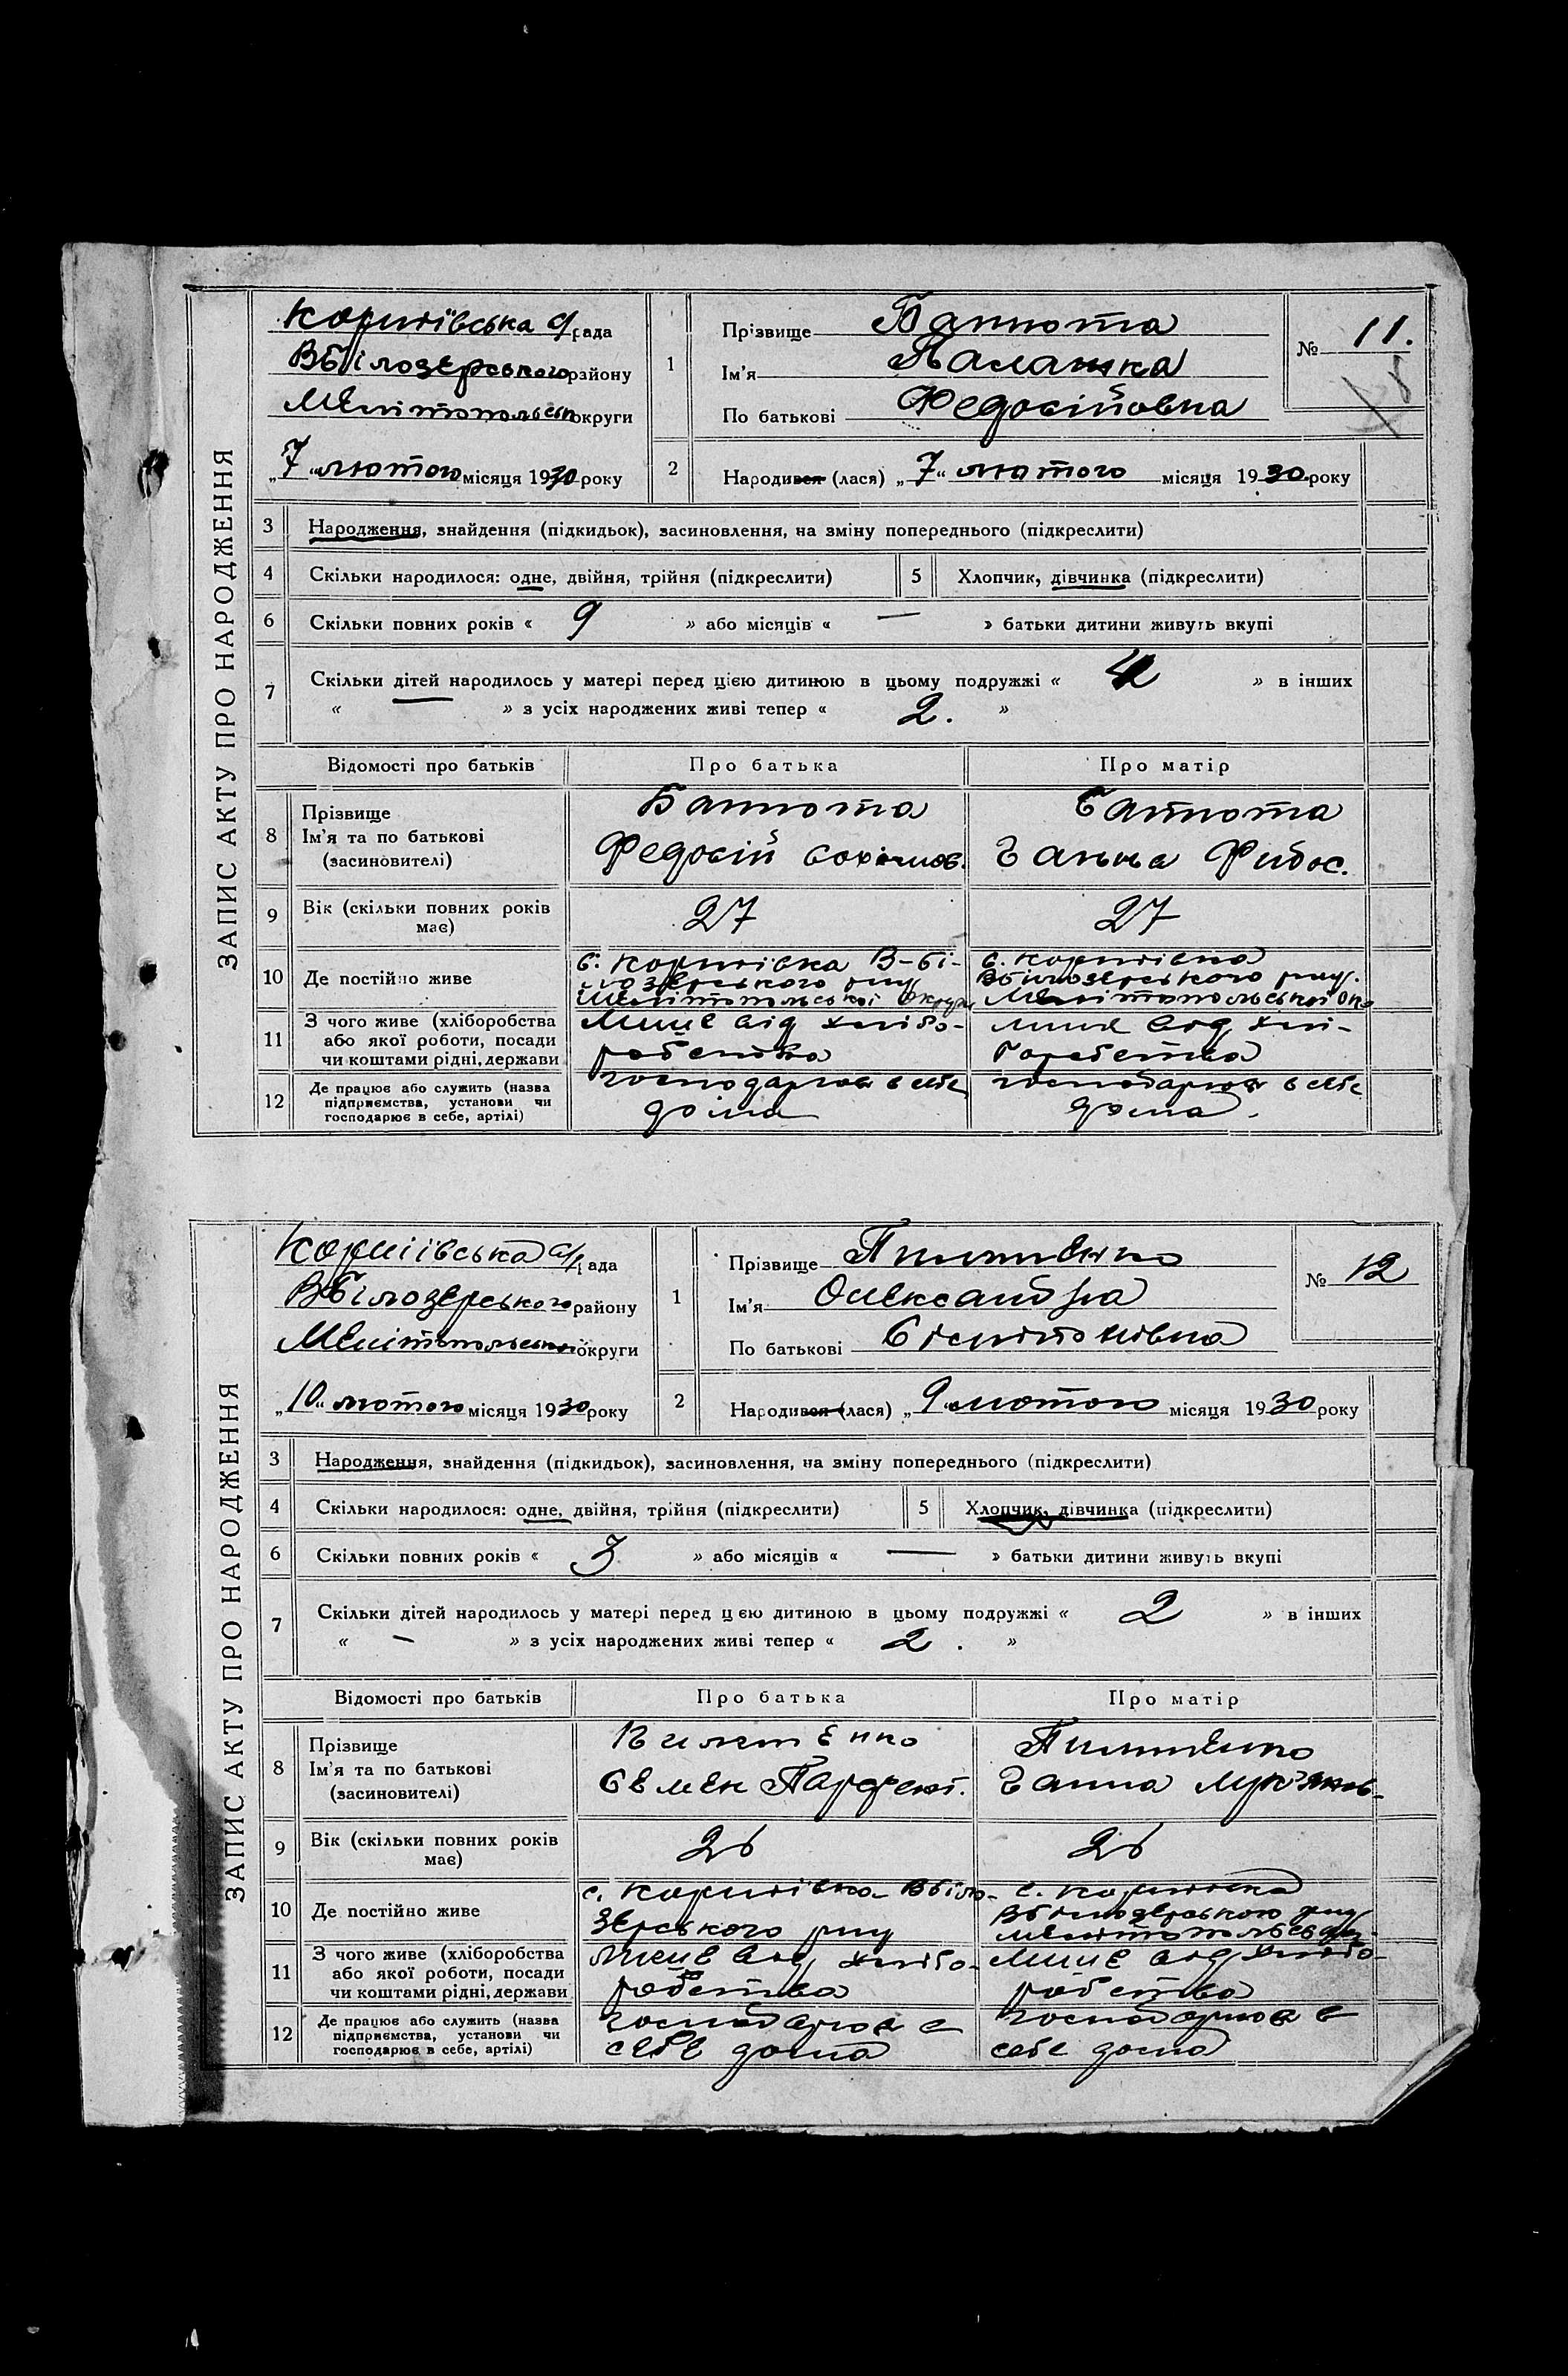 ЗАПИС АКТУ ПРО НАРОДЖЕННЯ
Корніївська с/рада
ВБілозерського району
Мелітопольськ округи
„7“ лютого місяця 1930 року
1
Прізвище Баннота
Ім'я Палашка
По батькові Федосійовна
№ 11.
2
Народився (лася) „7“ лютого місяця 1930 року
3 Народження, знайдення (підкидьок), засиновлення, на зміну попереднього (підкреслити)
4 Скільки народилося: одне, двійня, трійня (підкреслити) 5 Хлопчик, дівчинка (підкреслити)
6 Скільки повних років « 9 » або місяців « — » батьки дитини живуть вкупі
7 Скільки дітей народилось у матері перед цією дитиною в цьому подружжі « » в інших
« — » з усіх народжених живі тепер « 2. »
Відомості про батьків Про батька Про матір
8 Прізвище
Ім'я та по батькові
(засиновителі)
Баннота
Федосій
Баннота
Ганна
9 Вік (скільки повних років
має)
27 27
10 Де постійно живе
с. Корніївка В-Бі-
лозерського р-ну
Мелітопольської округи
с. Корнівка
ВБілозерського р-ну
Мелітопольської окр
11 З чого живе (хліборобства
або якої роботи, посади
чи коштами рідні, держави
Живе від хлібо-
робства
живе від хлі-
боробства
12 Де працює або служить (назва
підприємства, установи чи
господарює в себе, артілі)
господарює в себе
дома
господарює в себе
дома.
ЗАПИС АКТУ ПРО НАРОДЖЕННЯ
Корніївська с/рада
ВБілозерського району
Мелітопольської округи
„10“ лютого місяця 1930 року
1
Прізвище Пилипенко
Ім'я Олександра
По батькові
№ 12
2
Народився (лася) „9“ лютого місяця 1930 року
3 Народження, знайдення (підкидьок), засиновлення, на зміну попереднього (підкреслити)
4 Скільки народилося: одне, двійня, трійня (підкреслити) 5 Хлопчик, дівчинка (підкреслити)
6 Скільки повних років « 3 » або місяців « — » батьки дитини живуть вкупі
7 Скільки дітей народилось у матері перед цією дитиною в цьому подружжі « 2 » в інших
« — » з усіх народжених живі тепер « 2. »
Відомості про батьків Про батька Про матір
8 Прізвище
Ім'я та по батькові
(засиновителі)
Пилипенко
Семен Парфент.
Пилипенко
Ганна Лук'янов.
9 Вік (скільки повних років
має)
26 26
10 Де постійно живе
с. Корнівка ВБіло-
зерського р-ну
с. Корнівка
ВБілозерського р-ну
11 З чого живе (хліборобства
або якої роботи, посади
чи коштами рідні, держави
Живе від хлібо-
робства
Живе від хлібо-
робства
12 Де працює або служить (назва
підприємства, установи чи
господарює в себе, артілі)
господарює в
себе дома
господарює в
себе дома